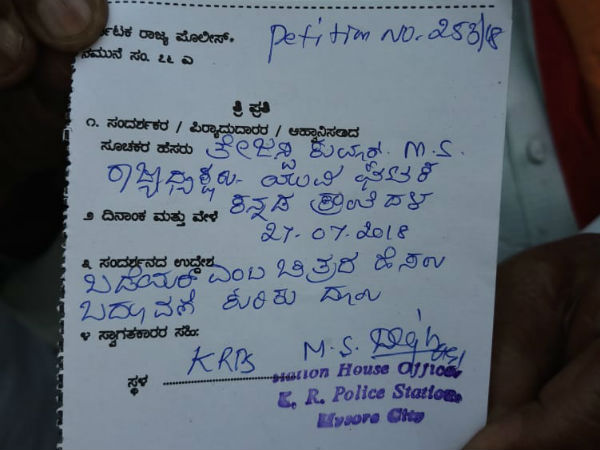 ರ್ನಾಟಕ ರಾಜ್ಯ ಪೊಲೀಸ್.
Petition NO. 253/18
ನಮೂನೆ ಸಂ. ೭೬ ಎ
ತ್ರಿ ಪ್ರತಿ
೧. ಸಂದರ್ಶಕರ / ಪಿರ್‍ಯಾದುದಾರರ / ಆಹ್ವಾನಿಸಲಾದ
ಸೂಚಕರ ಹೆಸರು ತೇಜಸ್ವಿ ಕುಮಾರ್. M.S.
ರಾಜ್ಯಾಧ್ಯಕ್ಷರು ಯುವ ಘಟಕ
ಕನ್ನಡ ಕ್ರಾಂತಿ ದಳ
೨ ದಿನಾಂಕ ಮತ್ತು ವೇಳೆ
27.07.2018
೩. ಸಂದರ್ಶನದ ಉದ್ದೇಶ
ಎಂಬ ಚಿತ್ರದ ಹೆಸರು
ಬದಲಾವಣೆ
೪ ಸ್ವಾಗತಕಾರರ ಸಹಿ:
KRPS M.S.
ಸ್ಥಳ
Station House Officer
K. R. Police Station,
Mysore City